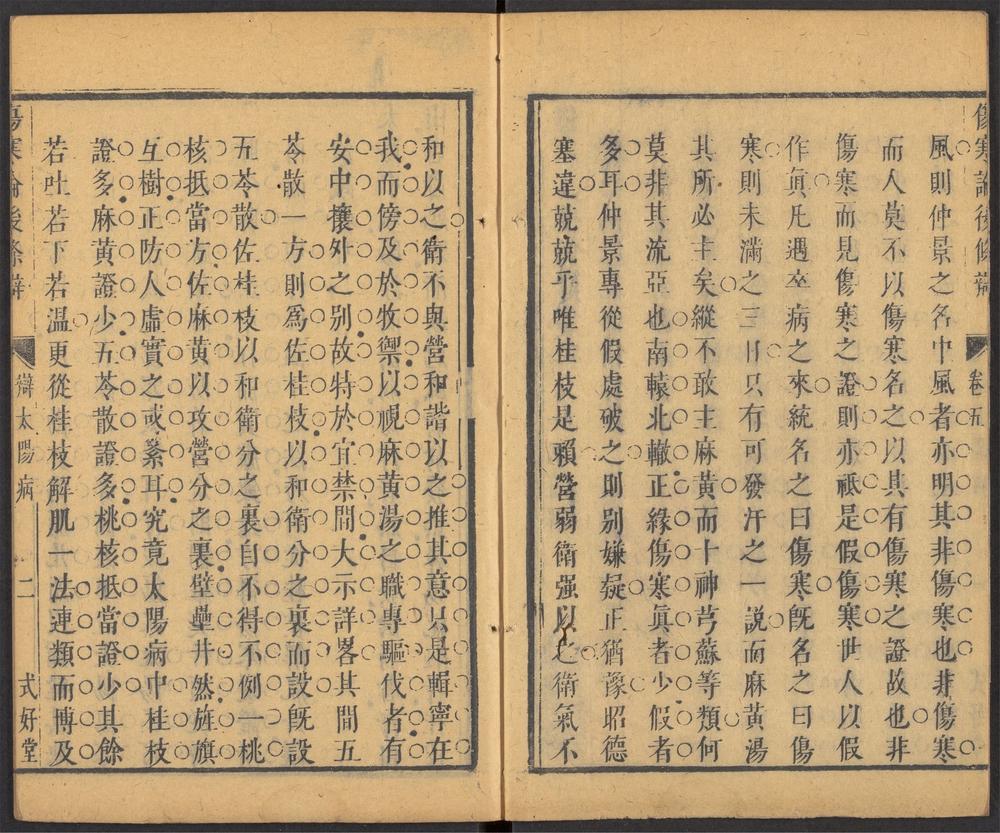 傷寒論後條辯 卷五
風則仲景之名中風者亦明其非傷寒也非傷寒
而人莫不以傷寒名之以具有傷寒之證故也非
傷寒而見傷寒之證則亦祗是假傷寒世人以假
作眞凡遇卒病之來統名之曰傷寒旣名之曰傷
寒則未滿之三日只有可發汗之一說而麻黃湯
其所必主矣縱不敢主麻黃而十神芎蘇等類何
莫非其流亞也南轅北轍正緣傷寒眞者少假者
多耳仲景專從假處破之則别嫌疑正猶豫昭德
塞違兢兢乎唯桂枝是賴營弱衛强以之衛氣不
和以之衛不與營和諧以之推其意只是輯寧在
我而傍及於牧禦以視麻黃湯之職專驅伐者有
安中攘外之别故特於宜禁間大示詳畧其間五
苓散一方則爲佐桂枝以和衛分之裏而設旣設
五苓散佐桂枝以和衛分之裏自不得不例一桃
核抵當方佐麻黃以攻營分之裏壁壘井然旌旗
互樹正防人虛實之或紊耳究竟太陽病中桂枝
證多麻黃證少五苓散證多桃核抵當證少其餘
若吐若下若温更從桂枝解肌一法連類而博及
傷寒論後條辯 辯太陽病 二 式好堂